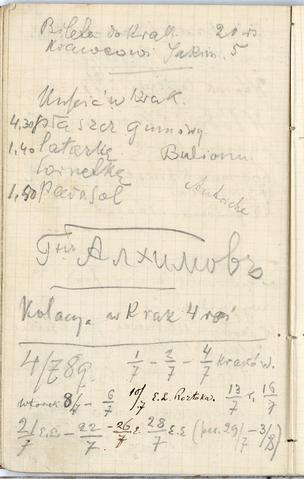 Bilet do Krak. 20 rs
Krawcowi Jakim. 5
Kupić w Krak.
4,30 płaszcz gumowy
1,40 latarkę Bulionu
lornetkę
1,50 parasol
Гнъ Алхимовъ
Kolacja w Krak 4 rs
4/7 89. 1/7 - 2/7 - 4/7 Kraków.
wtorek 8/7 - 6/7 10/7 E.E. Roztoka. 13/7 16/7
21/7 E.E. - 22/7 - 26/7 E. 28/7 E.E (per. 29/7 - 3/8)